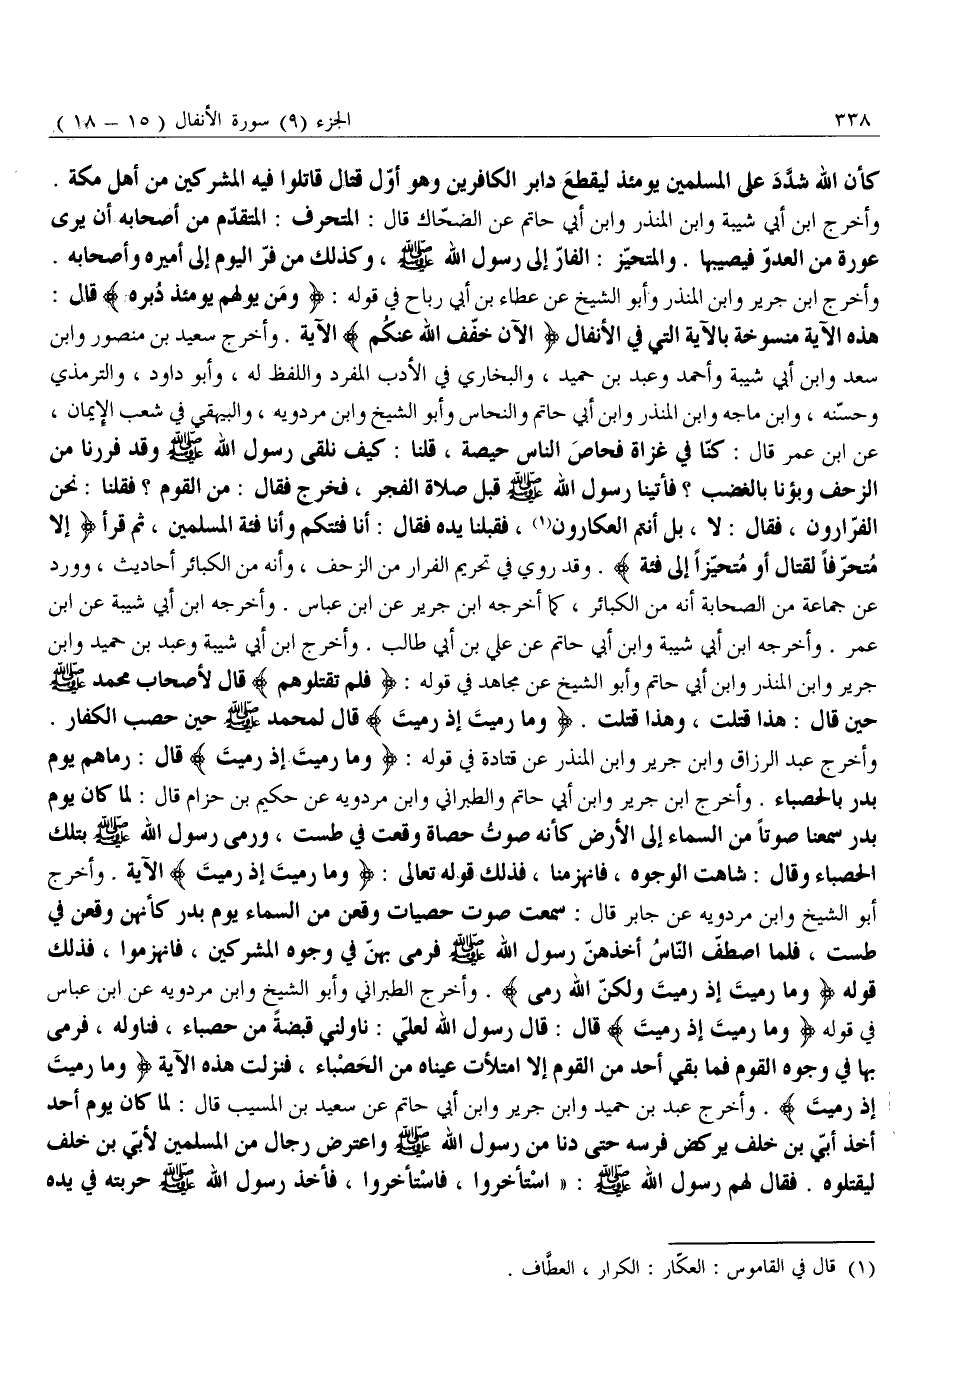 ٣٣٨ الجزء (٩) سورة الأنفال ( ١٥ – ١٨ )
كأن الله شدَّدَ على المسلمين يومئذ ليقطعَ دابر الكافرين وهو أوّل قتال قاتلوا فيه المشركين من أهل مكة .
وأخرج ابن أبي شيبة وابن المنذر وابن أبي حاتم عن الضحّاك قال : المتحرف : المتقدّم من أصحابه أن يرى
عورة من العدوّ فيصيبها . والمتحيّز : الفارّ إلى رسول الله ﷺ ، وكذلك من فرّ اليوم إلى أميره وأصحابه .
وأخرج ابن جرير وابن المنذر وأبو الشيخ عن عطاء بن أبي رباح في قوله : ﴿ ومَن يولهم يومئذ دُبره ﴾ قال :
هذه الآية منسوخة بالآية التي في الأنفال ﴿ الآن خفّف الله عنكُم ﴾ الآية . وأخرج سعيد بن منصور وابن
سعد وابن أبي شيبة وأحمد وعبد بن حميد ، والبخاري في الأدب المفرد واللفظ له ، وأبو داود ، والترمذي
وحسّنه ، وابن ماجه وابن المنذر وابن أبي حاتم والنحاس وأبو الشيخ وابن مردويه ، والبيهقي في شعب الإيمان ،
عن ابن عمر قال : كنّا في غزاة فحاصَ الناس حيصة ، قلنا : كيف نلقى رسول الله ﷺ وقد فررنا من
الزحف وبؤنا بالغضب ؟ فأتينا رسول الله ﷺ قبل صلاة الفجر ، فخرج فقال : من القوم ؟ فقلنا : نحن
الفرّارون ، فقال : لا ، بل أنتم العكارون(١) ، فقبلنا يده فقال : أنا فئتكم وأنا فئة المسلمين ، ثم قرأ ﴿ إلا
مُتحرّفاً لقتال أو مُتحيّزاً إلى فئة ﴾ . وقد روي في تحريم الفرار من الزحف ، وأنه من الكبائر أحاديث ، وورد
عن جماعة من الصحابة أنه من الكبائر ، كما أخرجه ابن جرير عن ابن عباس . وأخرجه ابن أبي شيبة عن ابن
عمر . وأخرجه ابن أبي شيبة وابن أبي حاتم عن علي بن أبي طالب . وأخرج ابن أبي شيبة وعبد بن حميد وابن
جرير وابن المنذر وابن أبي حاتم وأبو الشيخ عن مجاهد في قوله : ﴿ فلم تقتلوهم ﴾ قال لأصحاب محمد ﷺ
حين قال : هذا قتلت ، وهذا قتلت . ﴿ وما رميتَ إذ رميتَ ﴾ قال لمحمد ﷺ حين حصب الكفار .
وأخرج عبد الرزاق وابن جرير وابن المنذر عن قتادة في قوله : ﴿ وما رميتَ إذ رميتَ ﴾ قال : رماهم يوم
بدر بالحصباء . وأخرج ابن جرير وابن أبي حاتم والطبراني وابن مردويه عن حكيم بن حزام قال : لما كان يوم
بدر سمعنا صوتاً من السماء إلى الأرض كأنه صوتُ حصاة وقعت في طست ، ورمى رسول الله ﷺ بتلك
الحصباء وقال : شاهت الوجوه ، فانهزمنا ، فذلك قوله تعالى : ﴿ وما رميتَ إذ رميتَ ﴾ الآية . وأخرج
أبو الشيخ وابن مردويه عن جابر قال : سمعت صوت حصيات وقعن من السماء يوم بدر كأنهن وقعن في
طست ، فلما اصطفّ النّاسُ أخذهنّ رسول الله ﷺ فرمى بهنّ في وجوه المشركين ، فانهزموا ، فذلك
قوله ﴿ وما رميتَ إذ رميتَ ولكنّ الله رمى ﴾ . وأخرج الطبراني وأبو الشيخ وابن مردويه عن ابن عباس
في قوله ﴿ وما رميتَ إذ رميتَ ﴾ قال : قال رسول الله لعليّ : ناولني قبضةً من حصباء ، فناوله ، فرمى
بها في وجوه القوم فما بقي أحد من القوم إلا امتلأت عيناه من الحَصْباء ، فنزلت هذه الآية ﴿ وما رميتَ
إذ رميتَ ﴾ . وأخرج عبد بن حميد وابن جرير وابن أبي حاتم عن سعيد بن المسيب قال : لما كان يوم أحد
أخذ أبيّ بن خلف يركض فرسه حتى دنا من رسول الله ﷺ واعترض رجال من المسلمين لأبيّ بن خلف
ليقتلوه . فقال لهم رسول الله ﷺ : « اسْتأخروا ، فاسْتأخروا ، فأخذ رسول الله ﷺ حربته في يده
(١) قال في القاموس : العكّار : الكرار ، العطَّاف .